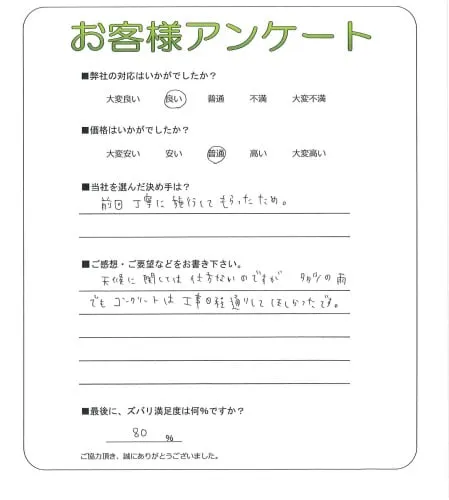 お客様アンケート
■弊社の対応はいかがでしたか？
大変良い 良い 普通 不満 大変不満
■価格はいかがでしたか？
大変安い 安い 普通 高い 大変高い
■当社を選んだ決め手は？
前回 丁寧に 施行して もらったため。
■ご感想・ご要望などをお書き下さい。
天候に 関しては 仕方ないのですが 多少の 雨
でも コンクリートは 工事日程通りして ほしかったです。
■最後に、ズバリ満足度は何%ですか？
80 %
ご協力頂き、誠にありがとうございました。